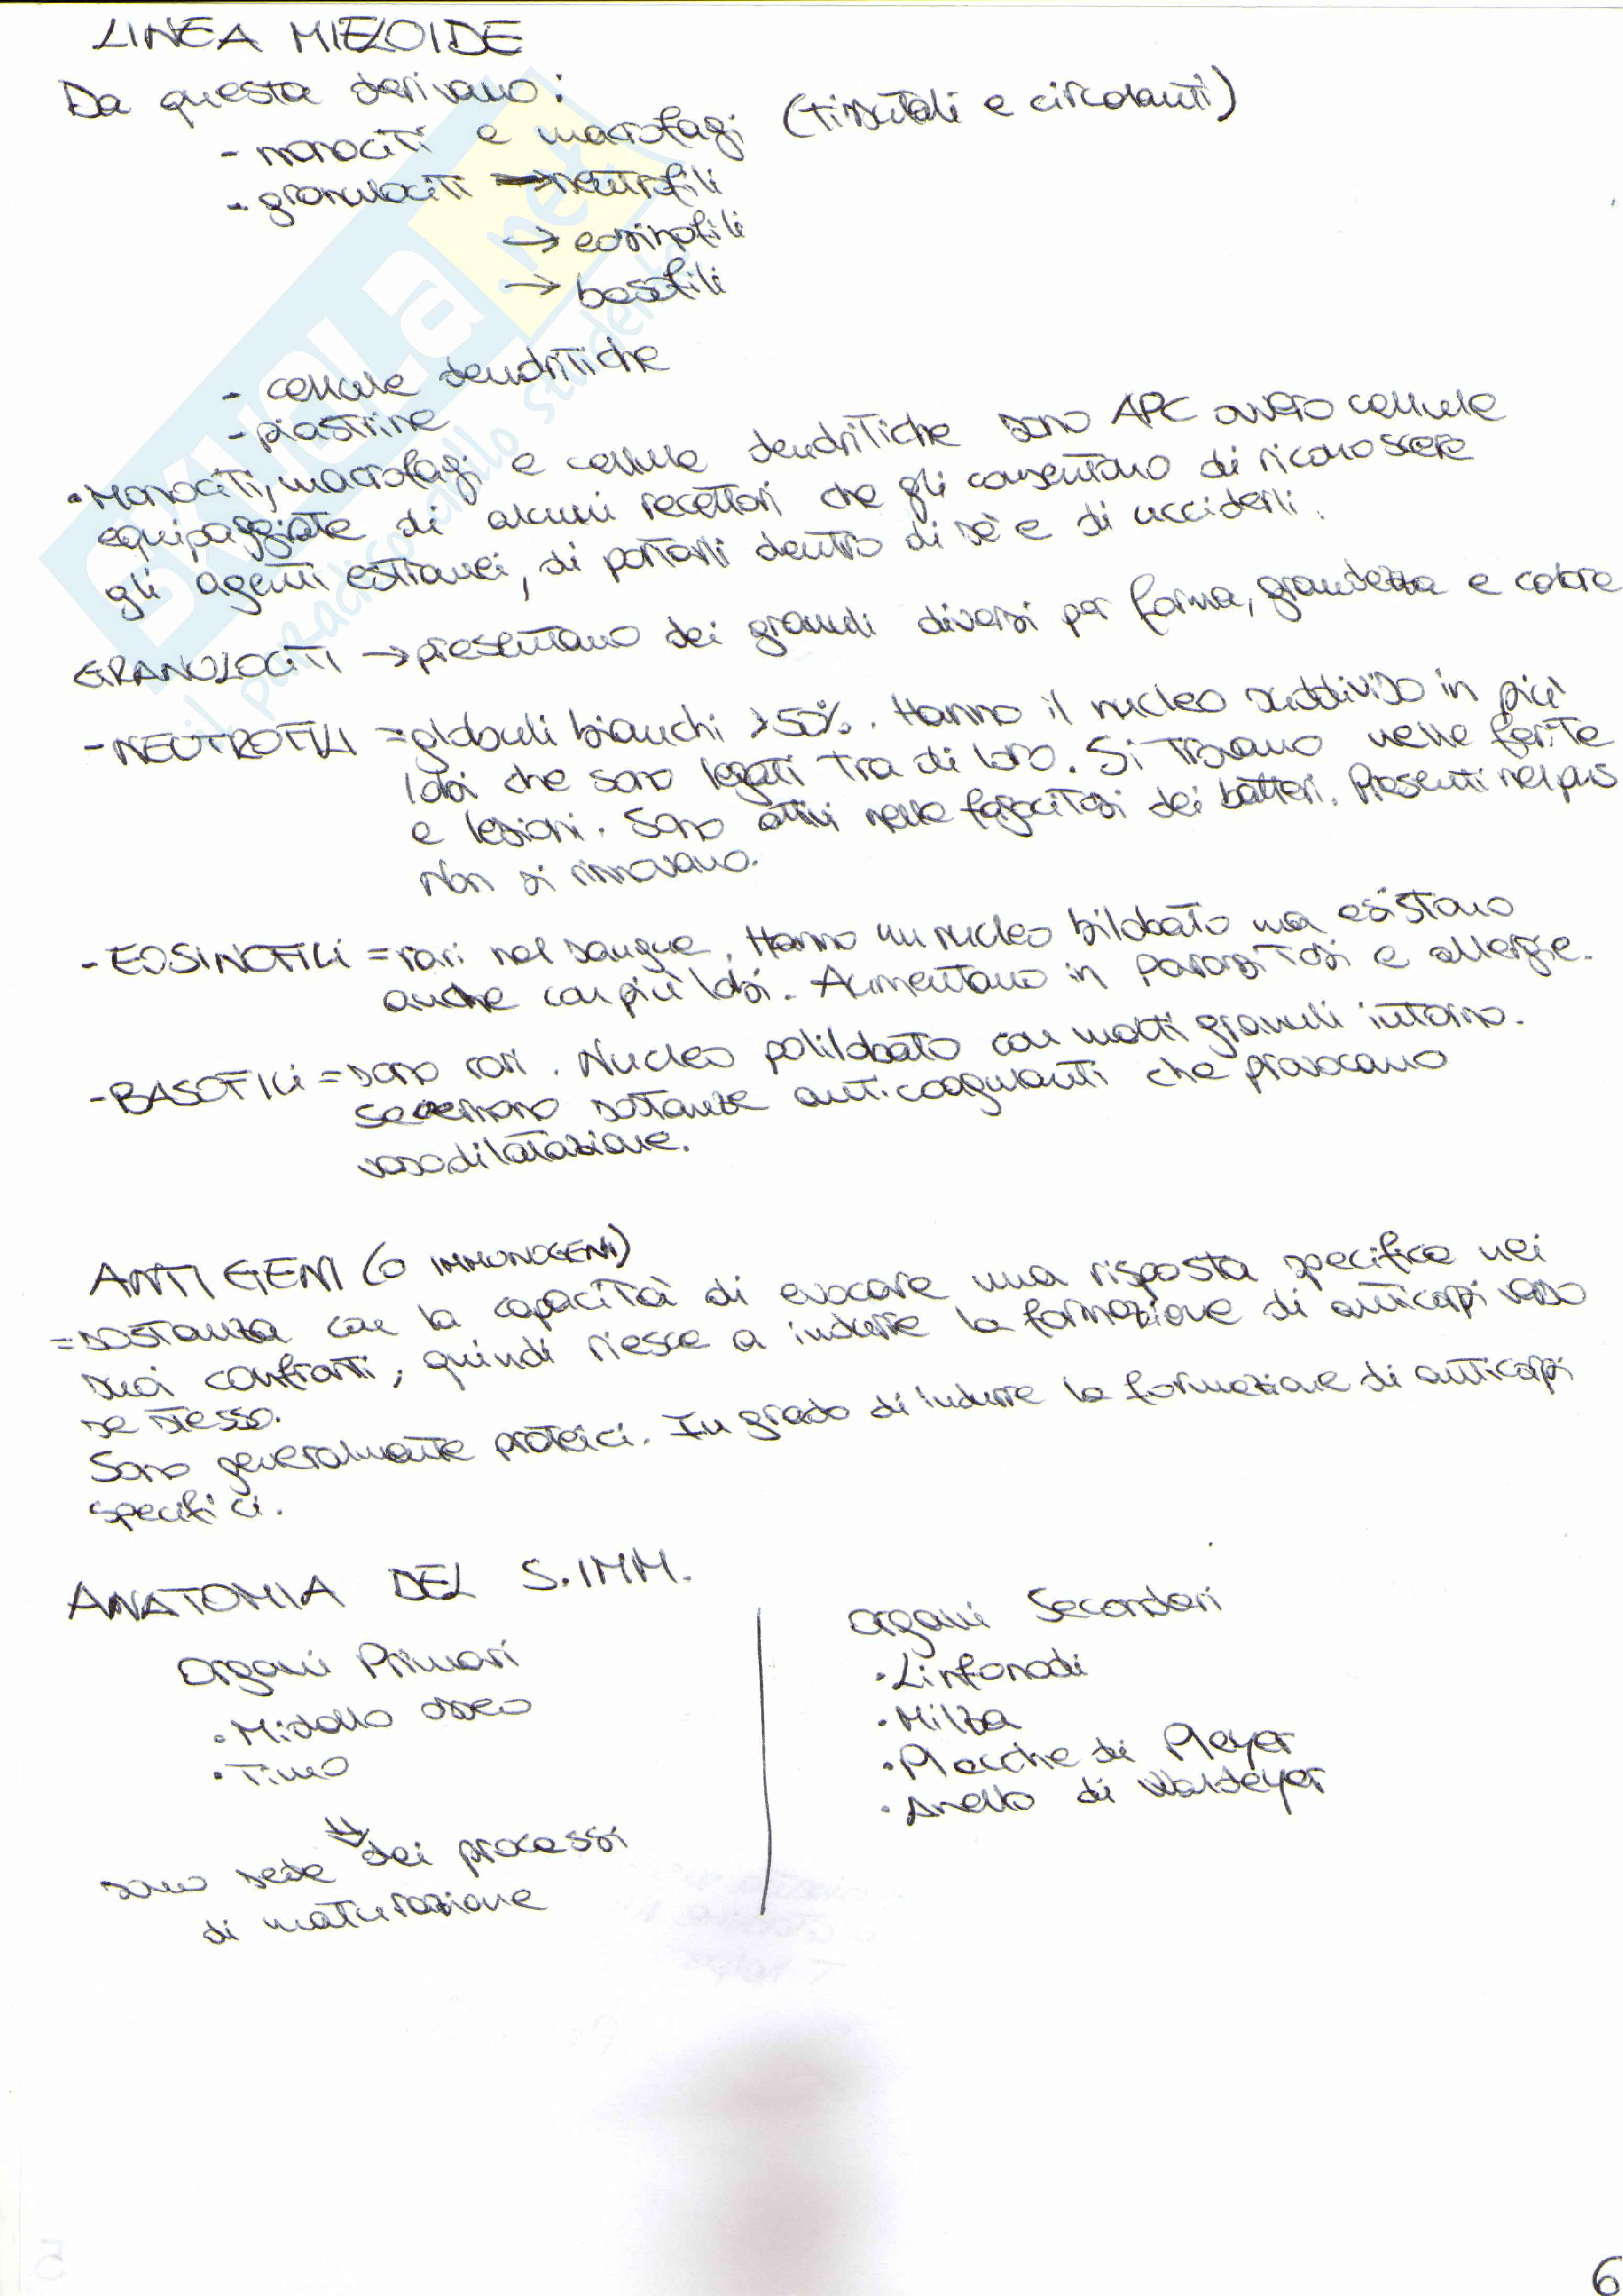 LINEA MIELOIDE
Da questa derivano:
- monociti e macrofagi (tissutali e circolanti)
- granulociti → neutrofili
→ eosinofili
→ basofili
- cellule dendritiche
- piastrine
• Monociti, macrofagi e cellule dendritiche sono APC ovvero cellule
equipaggiate di alcuni recettori che gli consentono di riconoscere
gli agenti estranei, di portarli dentro di sè e di ucciderli.
GRANOLOCITI → presentano dei granuli diversi per forma, grandezza e colore
- NEUTROFILI = globuli bianchi >50%. Hanno il nucleo suddiviso in più
lobi che sono legati tra di loro. Si trovano nelle ferite
e lesioni. Sono attivi nelle fagocitosi dei batteri. Presenti nel pus
Non si rinnovano.
- EOSINOFILI = rari nel sangue. Hanno un nucleo bilobato ma esistono
anche con più lobi. Aumentano in parassitosi e allergie.
- BASOFILI = sono rari. Nucleo polilobato con molti granuli intorno.
Secernono sostanze anticoagulanti che provocano
vasodilatazione.
ANTIGENI (o IMMUNOGENI)
= sostanza con la capacità di evocare una risposta specifica nei
suoi confronti, quindi riesce a indurre la formazione di anticorpi verso
se stesso.
Sono generalmente proteici. In grado di indurre la formazione di anticorpi
specifici.
ANATOMIA DEL S.IMM.
Organi Primari
• Midollo osseo
• Timo
⇓
sono sede dei processi
di maturazione
Organi Secondari
• Linfonodi
• Milza
• Placche di Pleyer
• Anello di Waldeyer
6
SKUOLA.net
il paradiso dello studente
5